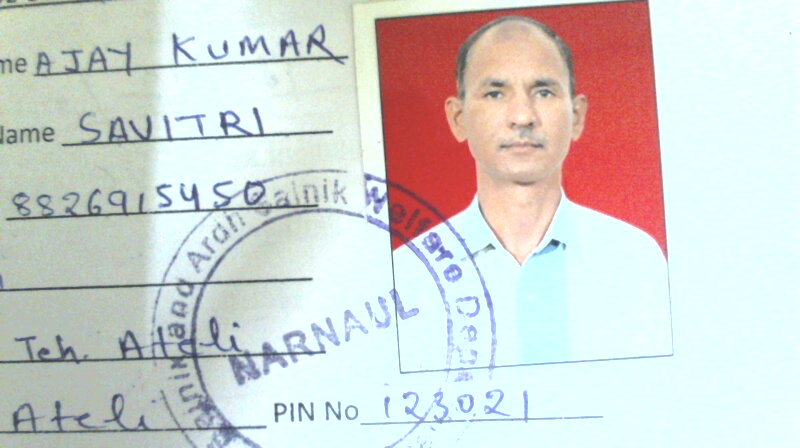 me AJAY KUMAR
Name SAVITRI
8826915450
Teh. Ateli
Ateli PIN No 123021
Sainik and Ardh Sainik Welfare Dept
NARNAUL